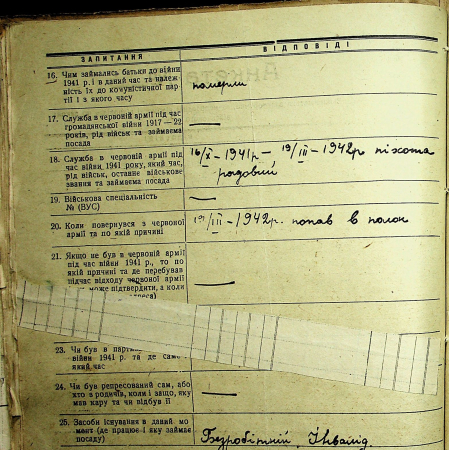 ЗАПИТАННЯ
ВІДПОВІДІ
16. Чим займались батьки до війни
1941 р. і в даний час та належ-
ність їх до комуністичної пар-
тії і з якого часу
померли
17. Служба в червоній армії під час
громадянської війни 1917—22
років, рід військ та займаєма
посада
—
18. Служба в червоній армії під
час війни 1941 року, який час,
рід військ, останнє військове
звання та займаєма посада
16/X - 1941р — 19/III - 1942р піхота
рядовий
19. Військова спеціальність
№ (ВУС)
20. Коли повернувся з червоної
армії та по якій причині
19/III - 1942р. попав в полон
21. Якщо не був в червоній армії
під час війни 1941 р., то по
якій причині та де перебував
підчас відходу червоної армії
може підтвердити, а коли
—
23. Чи був в
війни 1941 р. та де саме
який час
24. Чи був репресований сам, або
хто з родичів, коли і защо, яку
мав кару та чи відбув її
—
25. Засоби існування в даний мо
мент (де працює і яку займає
посаду)
Безробітний. Інвалід